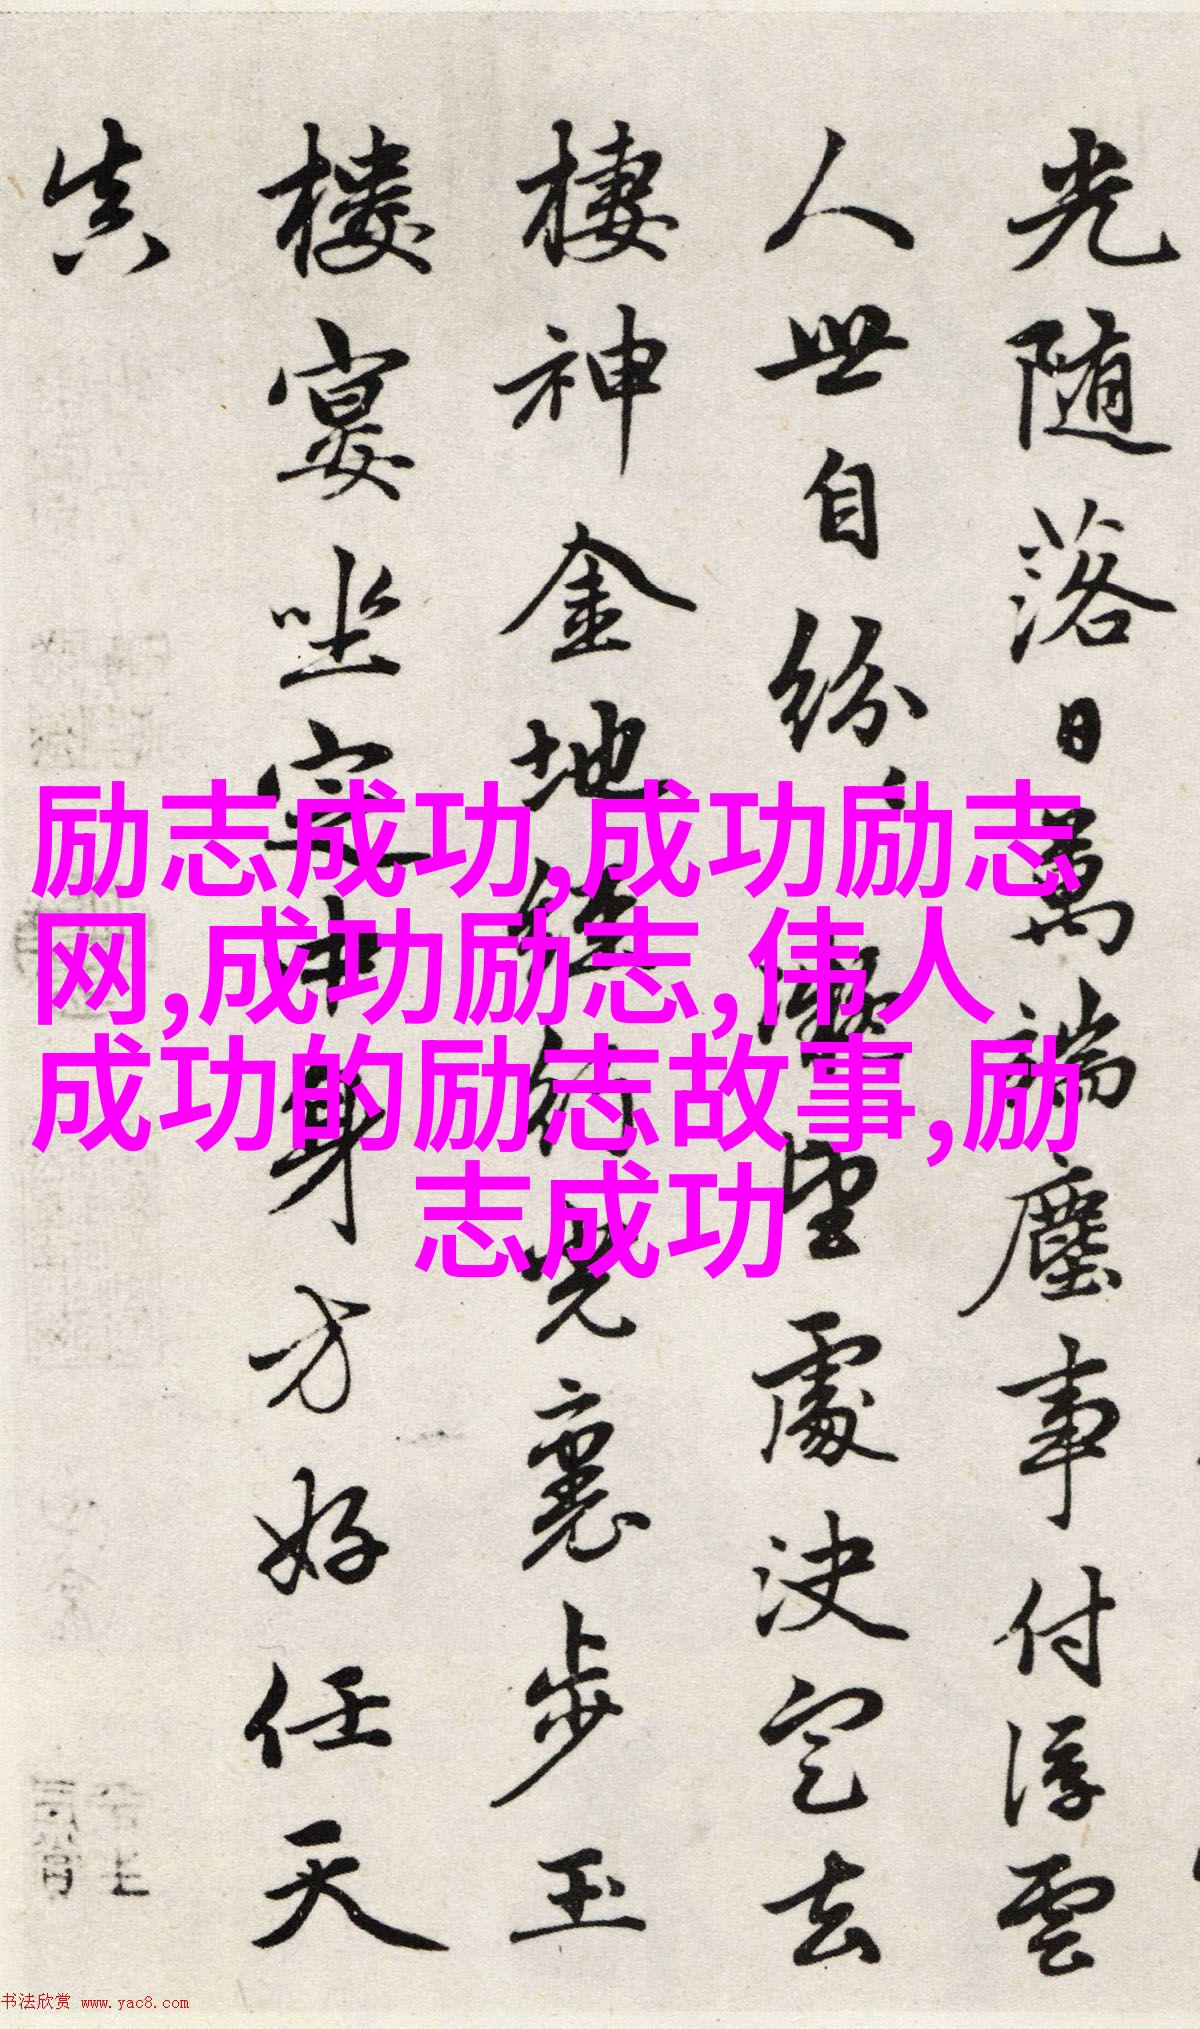 光随落日萬端塵事付浮雲
人世自紛望處決定去
棲神金地步玉
樓宴坐中身方好任天
真
励志成功,成功励志
网,成功励志,伟人
成功的励志故事,励
志成功
书法欣赏 www.yac8.com